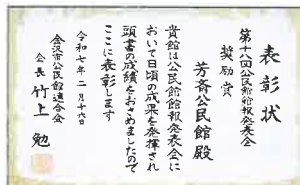 表彰状
第十八回公民館館報発表会
奨励賞
芳斉公民館殿
貴館は公民館館報発表会に
おいて日頃の成果を発揮され
頭書の成績をおさめましたので
ここに表彰します
令和七年二月十六日
金沢市公民館連合会
会長 竹上 勉